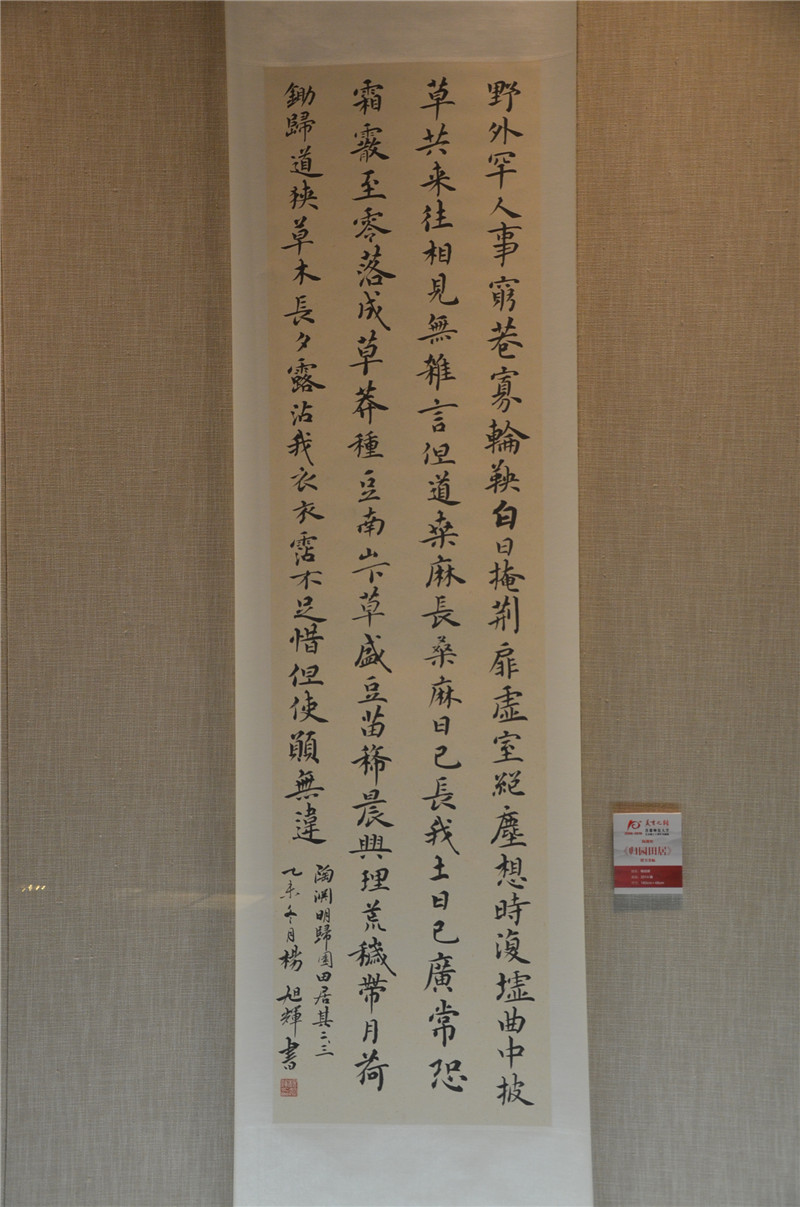 野外罕人事窮巷寡輪鞅白日掩荆扉虛室絕塵想時復墟曲中披
草共来往相見無雜言但道桑麻長桑麻日已長我土日已廣常恐
霜霰至零落成草莽種豆南山下草盛豆苗稀晨興理荒穢帶月荷
鋤歸道狹草木長夕露沾我衣衣霑不足惜但使願無違
陶渊明歸園田居其二、三
乙未冬月楊旭輝書
《归园田居》